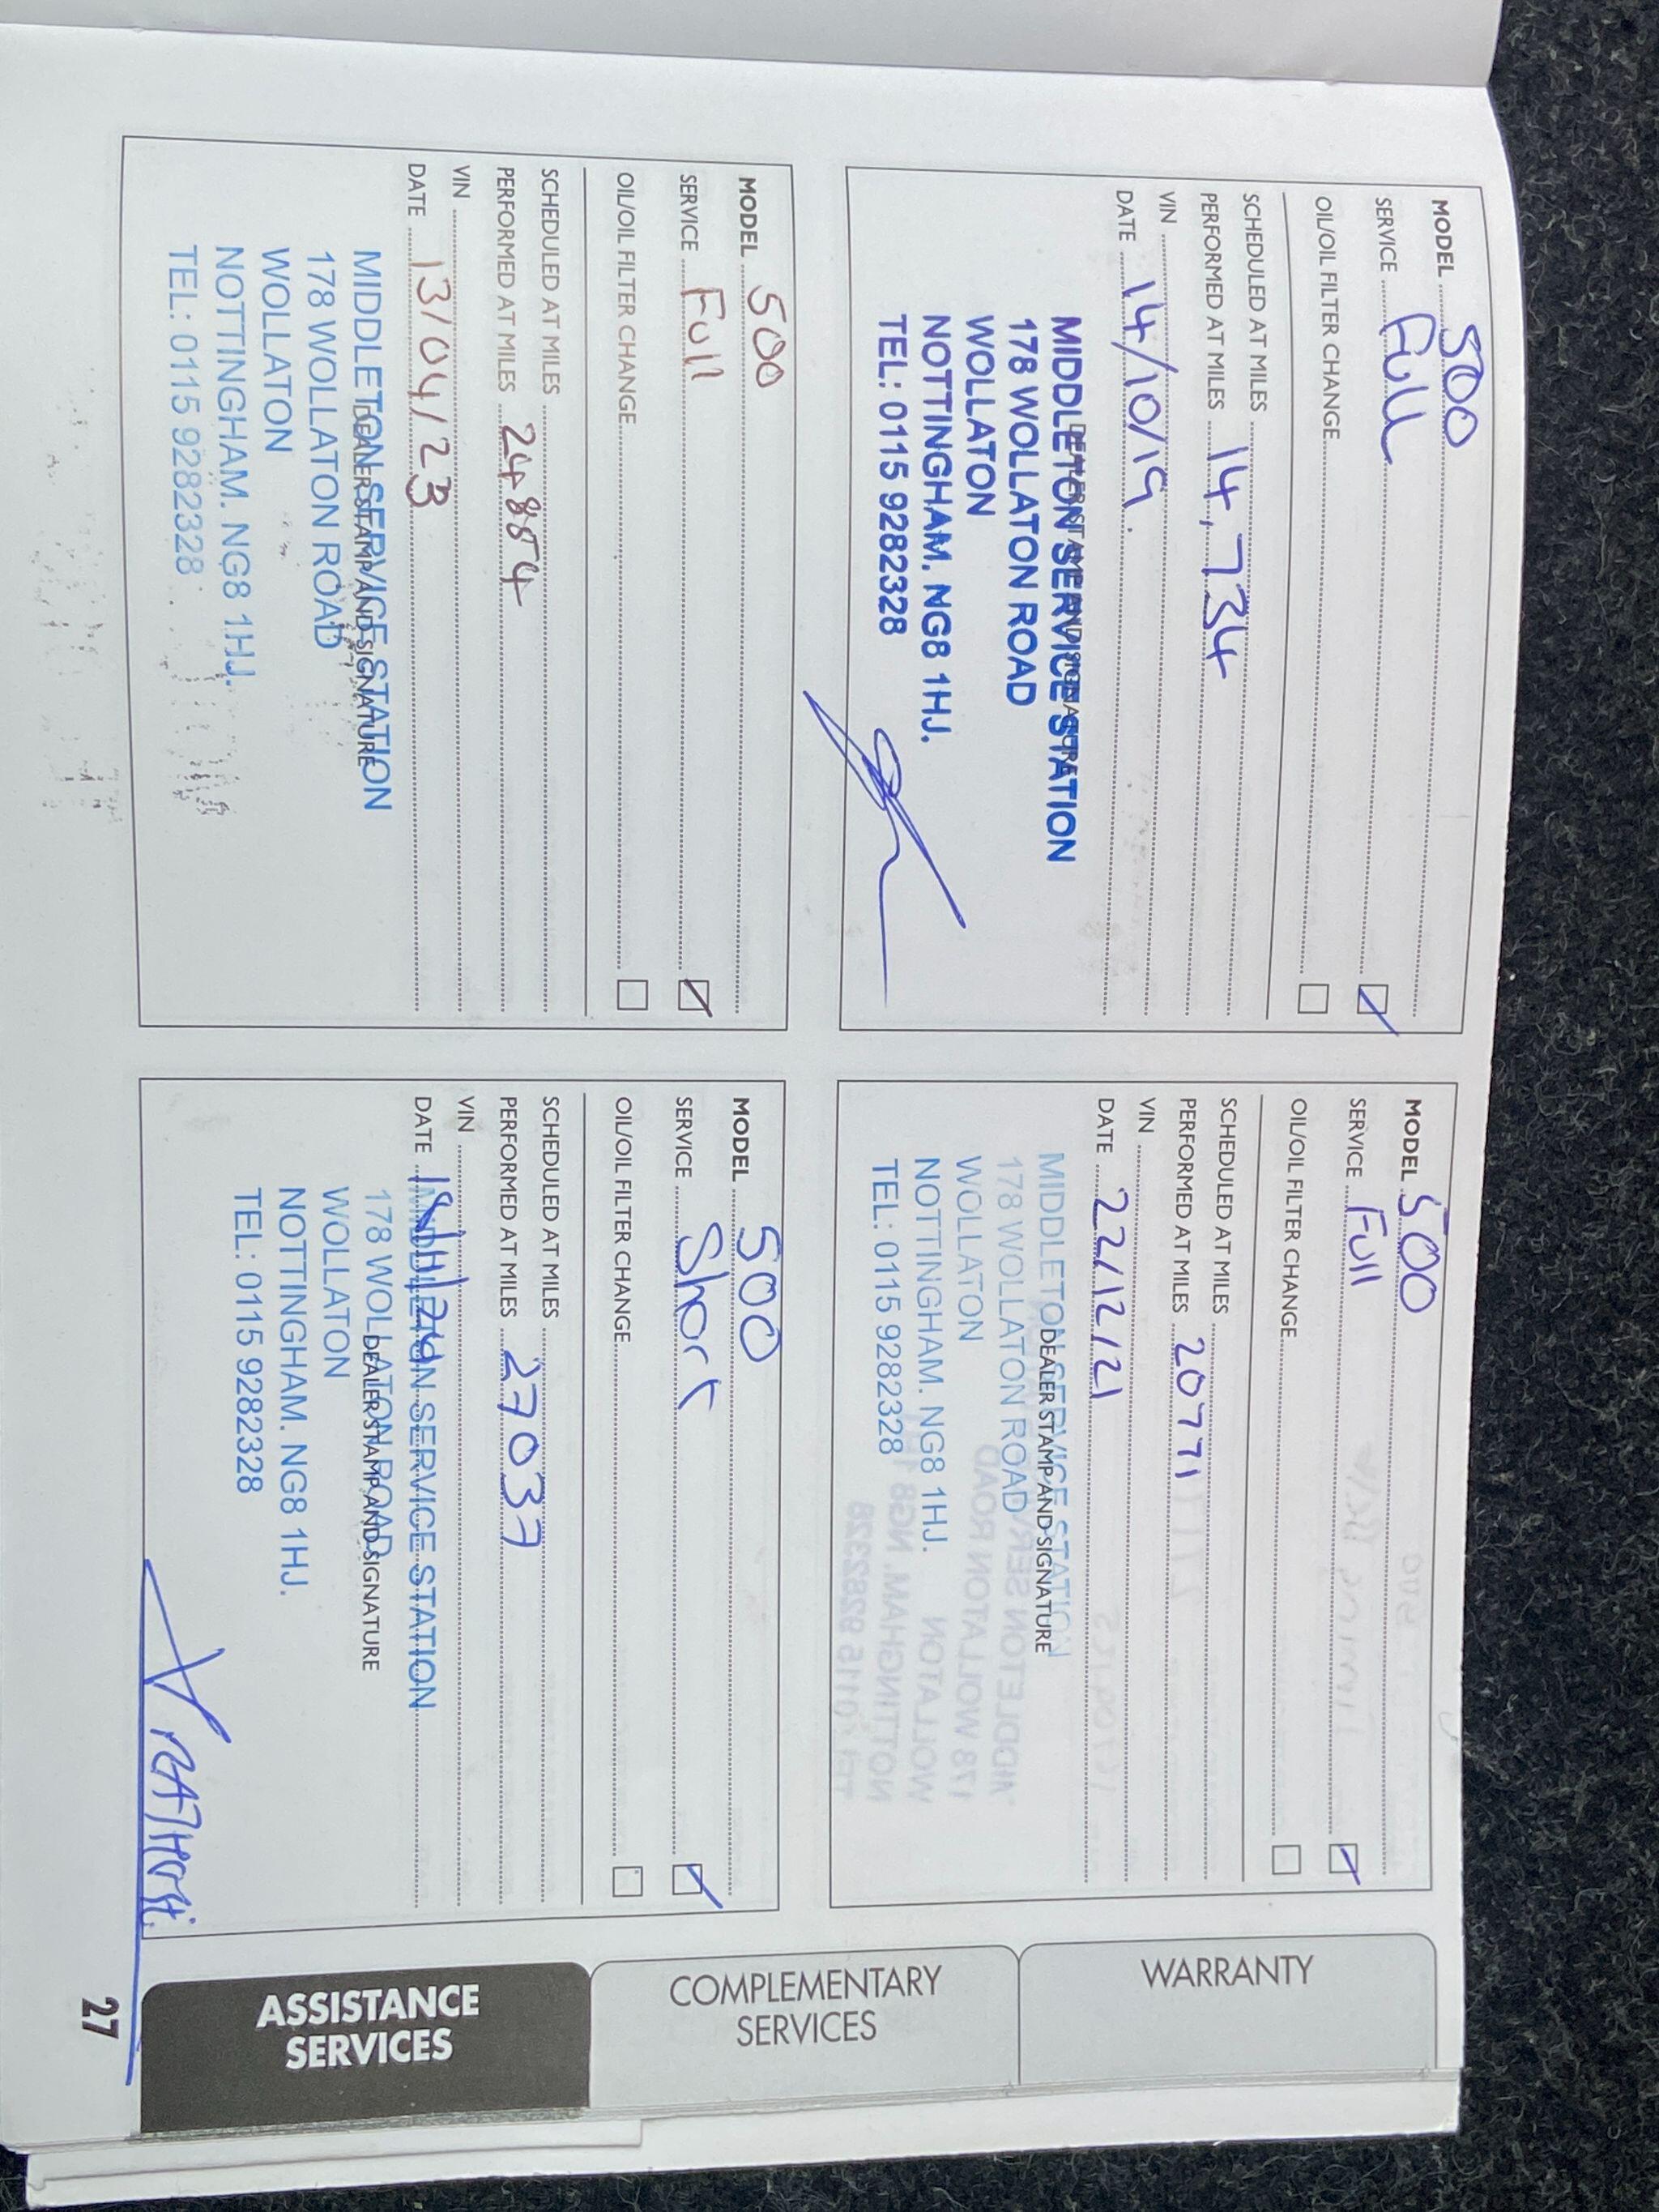 MODEL 500
SERVICE Full
OIL/OIL FILTER CHANGE
SCHEDULED AT MILES
PERFORMED AT MILES 14,734
VIN
DATE 14/10/19.
DEALER STAMP AND SIGNATURE
MIDDLETON SERVICE STATION
178 WOLLATON ROAD
WOLLATON
NOTTINGHAM. NG8 1HJ.
TEL: 0115 9282328
MODEL 500
SERVICE Full
OIL/OIL FILTER CHANGE
SCHEDULED AT MILES
PERFORMED AT MILES 20771
VIN
DATE 22/12/21
DEALER STAMP AND SIGNATURE
MIDDLETON SERVICE STATION
178 WOLLATON ROAD
WOLLATON
NOTTINGHAM. NG8 1HJ.
TEL: 0115 9282328
MODEL 500
SERVICE Full
OIL/OIL FILTER CHANGE
SCHEDULED AT MILES
PERFORMED AT MILES 24854
VIN
DATE 13/04/23
DEALER STAMP AND SIGNATURE
MIDDLETON SERVICE STATION
178 WOLLATON ROAD
WOLLATON
NOTTINGHAM. NG8 1HJ.
TEL: 0115 9282328
MODEL 500
SERVICE Short
OIL/OIL FILTER CHANGE
SCHEDULED AT MILES
PERFORMED AT MILES 27037
VIN
DATE
MIDDLETON SERVICE STATION
DEALER STAMP AND SIGNATURE
178 WOLLATON ROAD
WOLLATON
NOTTINGHAM. NG8 1HJ.
TEL: 0115 9282328
WARRANTY
COMPLEMENTARY
SERVICES
ASSISTANCE
SERVICES
27